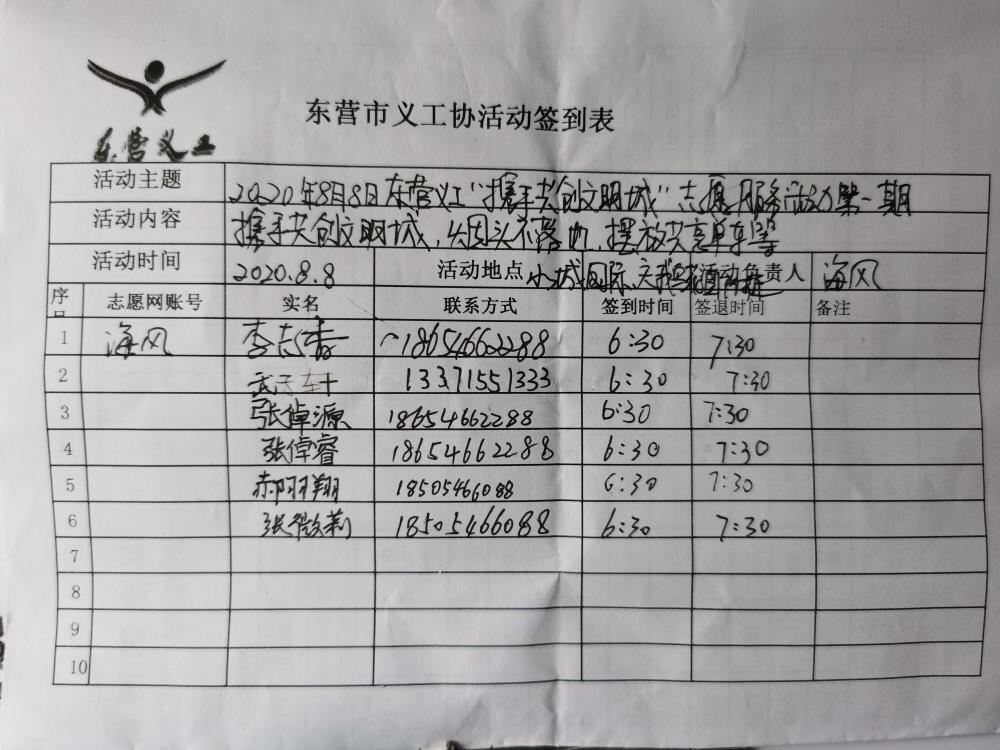 东营义工
东营市义工协活动签到表
活动主题 2020年8月8日东营义工"携手共创文明城"志愿服务活动第一期
活动内容 携手共创文明城,公园头不落地,摆放共享单车等
活动时间 2020.8.8 活动地点 小城国际、 活动负责人 海风
序号 志愿网账号 实名 联系方式 签到时间 签退时间 备注
1 海风 李志香 18654662288 6:30 7:30
2 武子轩 13371551333 6:30 7:30
3 张倬源 18654662288 6:30 7:30
4 张倬睿 18654662288 6:30 7:30
5 郝羽翔 18505466088 6:30 7:30
6 张微莉 18505466088 6:30 7:30
7
8
9
10